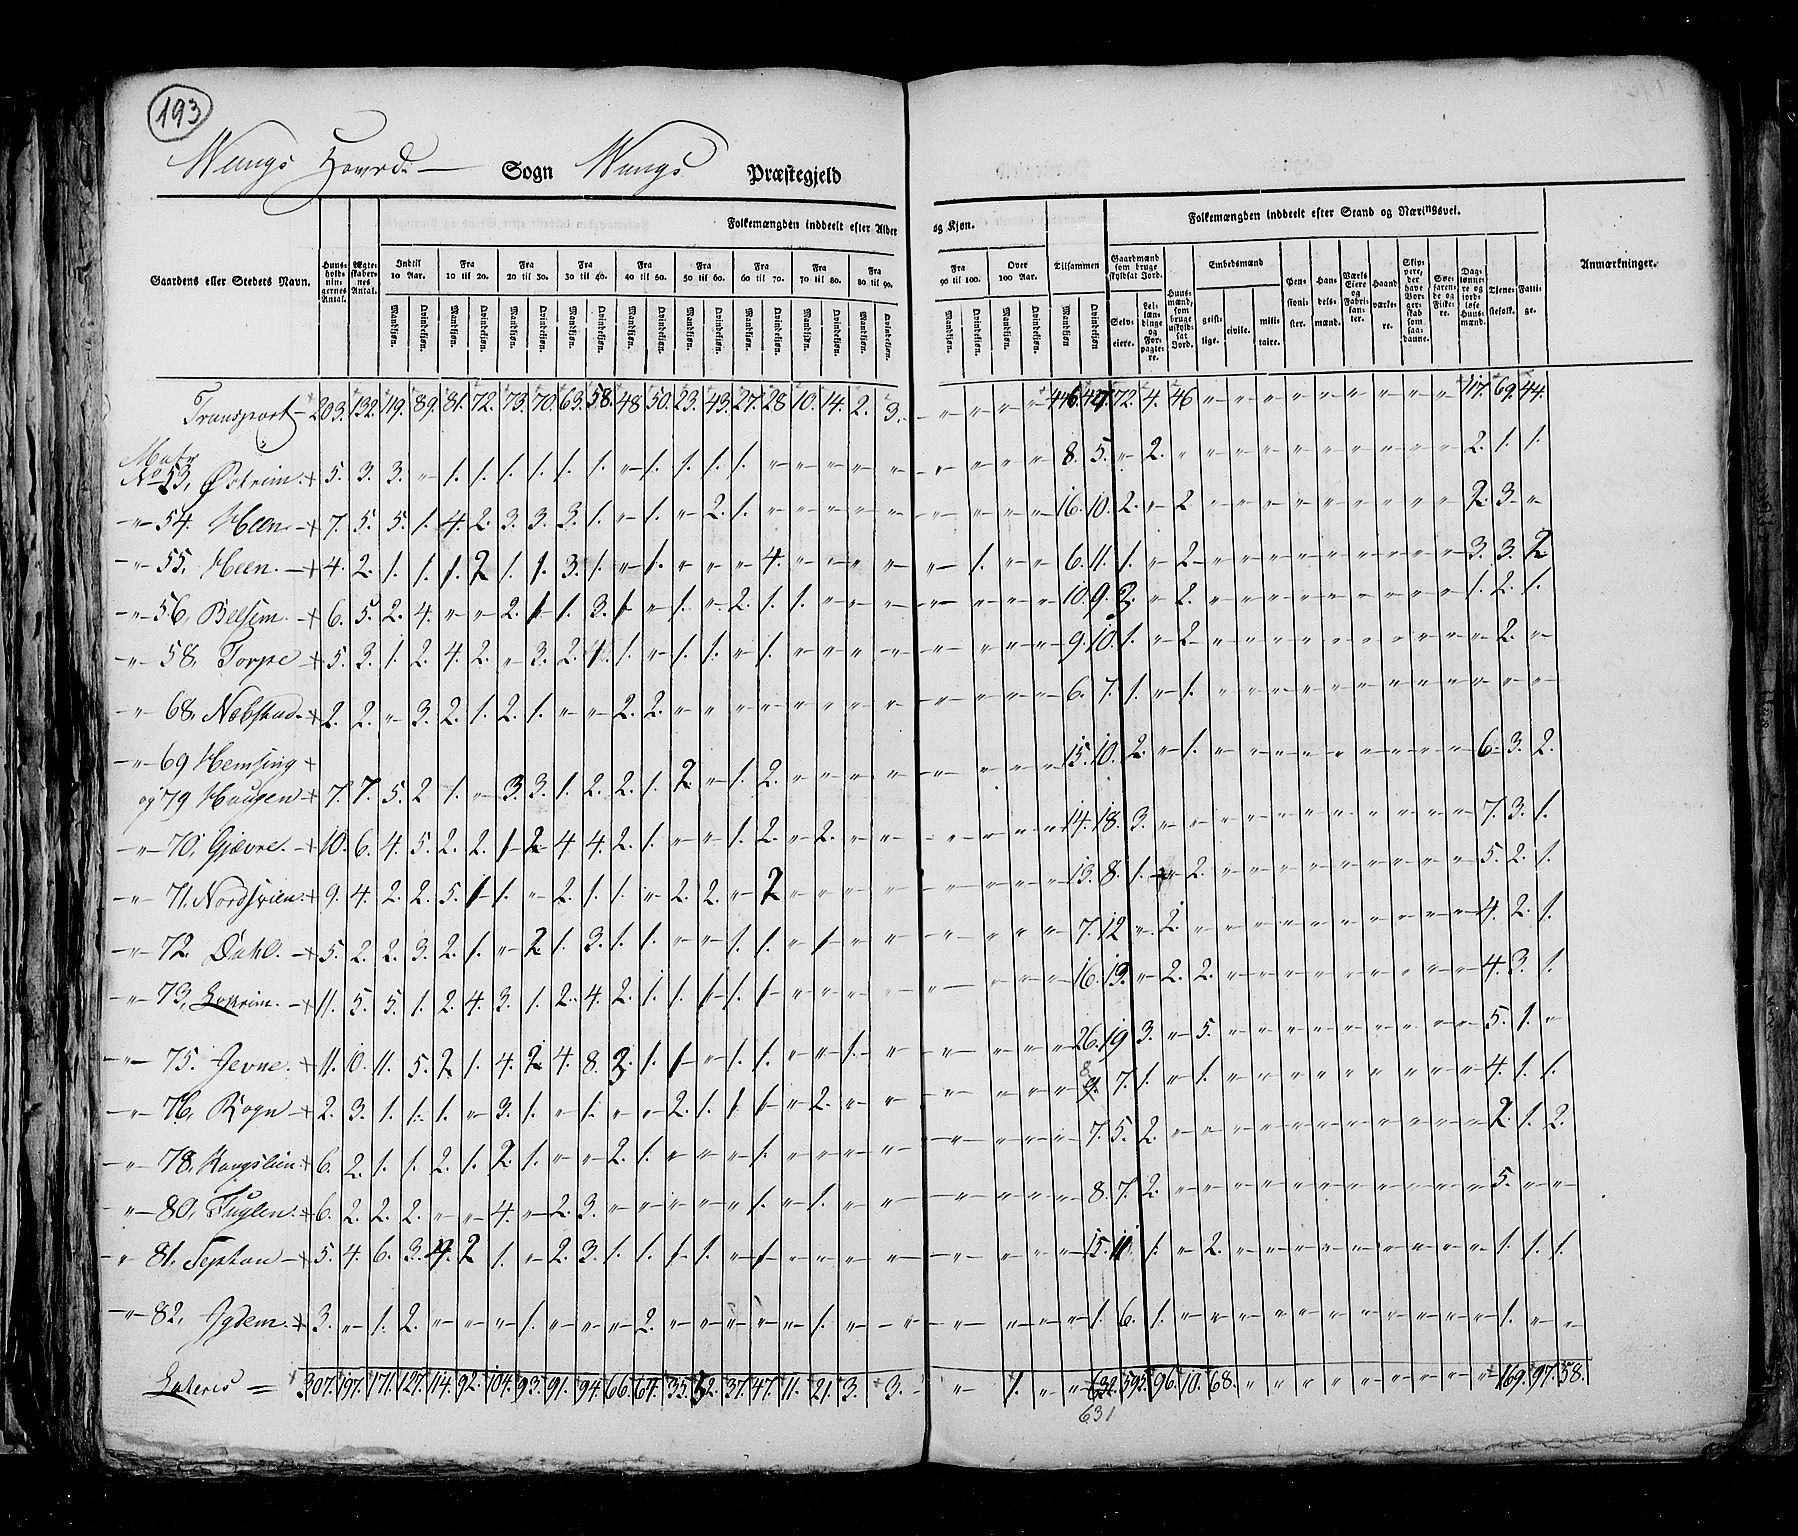 193
Wangs Hoved Sogn Wangs Præstegjeld
Folkemængden inddeelt efter Alder og Kjøn. Folkemængden inddeelt efter Stand og Næringsvei.
Gaardens eller Stedets Navn. Huusholdningernes Antal. Ægteskabernes Antal. Indtil 10 Aar. Fra 10 til 20. Fra 20 til 30. Fra 30 til 40. Fra 40 til 50. Fra 50 til 60. Fra 60 til 70. Fra 70 til 80. Fra 80 til 90. Fra 90 til 100. Over 100 Aar. Tilsammen Gaardmænd som bruge skyldsat Jord. Huusmænd, som bruge uskyldsat Jord. Embedsmænd Pensionister. Handelsmænd. Værks Eiere og Fabrikanter. Haandværkere. Skippere, der have Borgerskab som saadanne. Søefarende og Fiskere. Daglønnere og jordløse Huusmænd. Tjenestefolk. Fattige. Anmærkninger.
Mandkjøn. Qvindekjøn. Mandkjøn. Qvindekjøn. Mandkjøn. Qvindekjøn. Mandkjøn. Qvindekjøn. Mandkjøn. Qvindekjøn. Mandkjøn. Qvindekjøn. Mandkjøn. Qvindekjøn. Mandkjøn. Qvindekjøn. Mandkjøn. Qvindekjøn. Mandkjøn. Qvindekjøn. Mandkjøn. Qvindekjøn. Mandkjøn Qvindekjøn Selveiere. Leilændinge og Forpagtere. geistlige. civile. militaire.
Transport 203. 132. 119. 89. 81. 72. 73. 70. 63. 58. 48. 50. 23. 43. 27. 28 10. 14. 2. 3. 446. 72. 4. 46 117. 69. 44.
Matr
No 53, Østrim. 5. 3. 3. " 1. 1. 1. 1. 1. 1. " 1. 1. 1. 1. 8. 5. " 2. 2. 1. 1.
" 54. Heen 7. 5. 5. 1. 4. 2. 3. 3. 3. 1. " 1. " 2. 1. 16. 10. 2. " 2 2. 3. "
" 55, Heen. 4. 2. 1. 1. 1. 2 1. 1. 3. 1. " 1. " " " 4. 1. 6. 11. 1. " 2 3. 3. 2
" 56, Bellsem. 6. 5. 2. 4. " " 2. 1 1. 3. 1 " 1. " 2. 1. 1. 10. 9 2. " 2. 1. 2. 1.
" 58, Torpe 5. 3. 1. 2. 4. 2. " 3. 2. 1. 1. " 1. 1. " 1. 9. 10. 1. " 2 " 2. "
" 68, Nebstad. 2. 2. " 3. 2. 1. 2. 1. " " 2. 2. 6. 7. 1. " 1.
" 69 Hemsing
og 79 Haugen 7. 7. 5. 2 1. " 3. 3. 1. 2. 2. 1. 2. " 1. 2. 15. 10. 2. " 1. 6. 3. 2.
" 70, Gjævre. 10. 6. 4. 5. 2. 2. 1 2 4 4. 2. 1. " " 1. 2. " 2. 14. 18. 3. 7. 3. 1.
" 71. Nordsvien 9. 4. 2. 2. 5. 1 1. " 2. 1. 1. " 2. 2. " 2 13. 8. 1. " 2. 5. 2. 1.
" 72. Dahl. 5. 2. 2. 3. 2. 1. " 2. 1. 3. 1. 1. " " 1. 1. " 1 7. 12 " 2. 4. 2. 1.
" 73, 11. 5. 5. 1. 2. 4. 3. 1. 2. 4. 2. 1. 1. 1 1. 1 16. 13. " 2. 2. 4. 3. 1.
" 75. Jevne. 11. 10. 11. 5. 2 1. 4. 2 4. 8. 3. 1. 1 " 1. 1. " " 1. 26. 19 3. " 5. 5. 1. "
8
" 76, Rogn 2. 3. 1. 1. 1. " 3. 1. " 1. " " 2. 1. 1 1. " 2. 9. 7. 1. " 1. 4. 1. 1.
" 78, Kongslien 6. 2. 1. 1. 2. 1. 2. 1. " " 2. 1. " " " 1. 7. 5. 2. 2. 1. 2.
" 80, Fuglen. 6. 2. 2. 2. " " 4. " 2. 3. " " " " " 1. " 1. 8. 7. 2. 5. " "
" 81. 5. 4. 6. 3. 4. 2 1. " 2. 3. 1. 1. 1 1. " 1 15. 11 1. " 2. 1. 1. 1.
" 82, Igdem. 3. " 1. 2. " " " 1. " " " 2. " " " " " 1. 1. 6. 1. 1. " "
Lateris = 307. 197. 171. 127. 114. 92. 104. 93. 91. 94. 66. 64. 35. 52. 37. 47. 11. 21. 3. 3. 1. 632. 595. 96. 10. 68. 169. 97. 58.
631